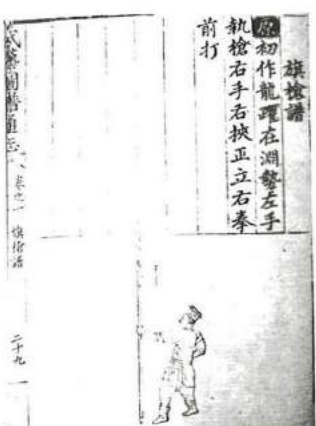 旗槍譜
原初作龍躍在淵勢左手
執槍右手右挾正立右拳
前打
武藝圖譜通志
卷之一
旗槍譜
二十九